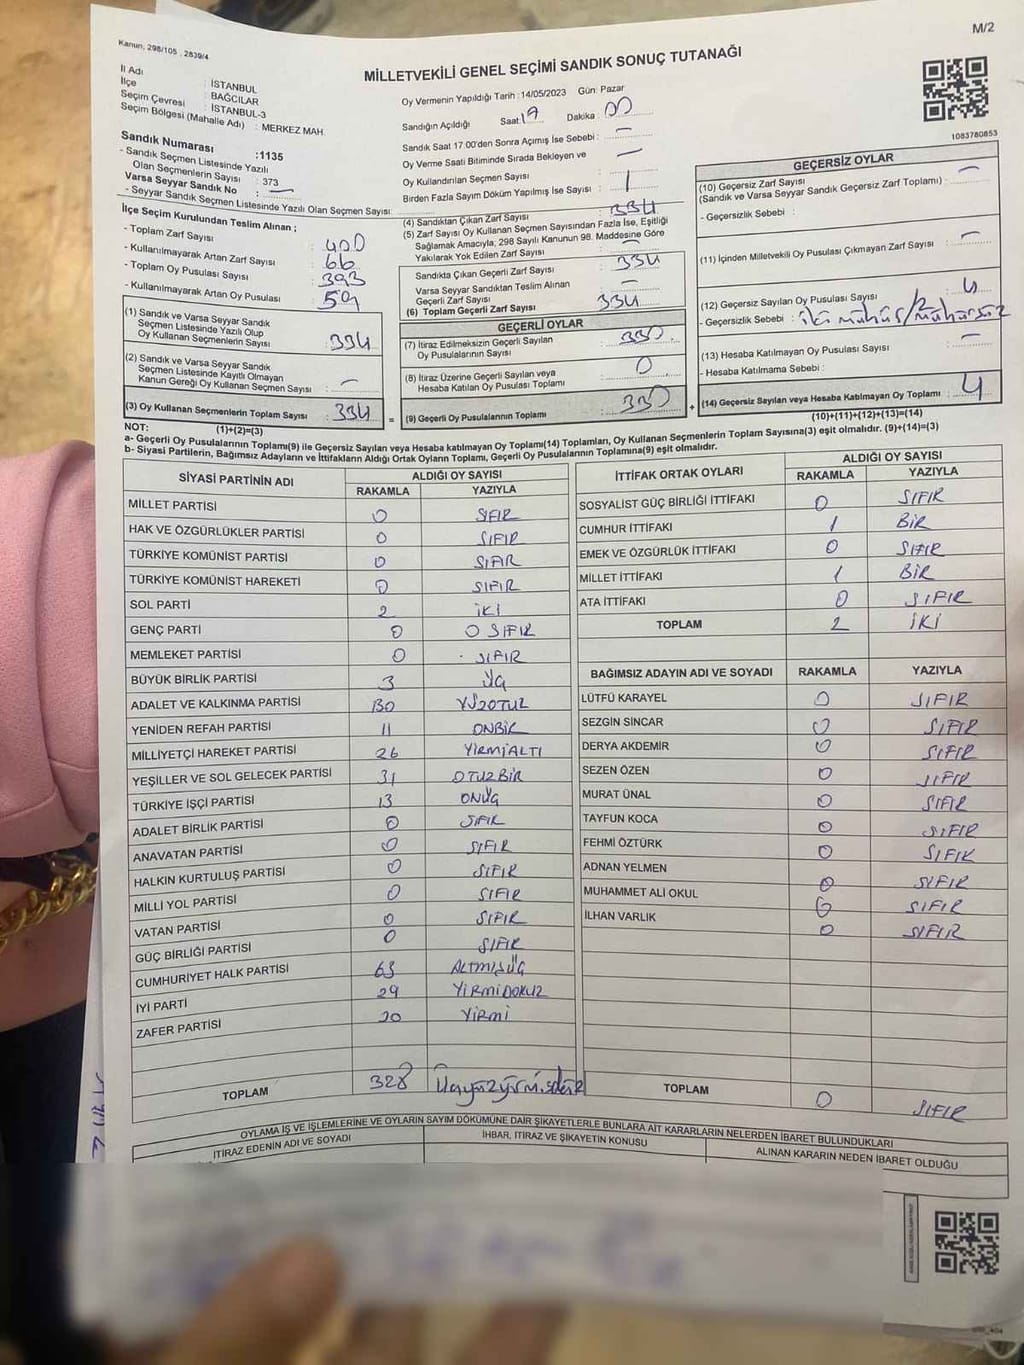 M/2
Kanun, 298/105 , 2839/4
MİLLETVEKİLİ GENEL SEÇİMİ SANDIK SONUÇ TUTANAĞI
İl Adı : İSTANBUL
İlçe : BAĞCILAR
Seçim Çevresi : İSTANBUL-3
Seçim Bölgesi (Mahalle Adı) : MERKEZ MAH.
Sandık Numarası :1135
- Sandık Seçmen Listesinde Yazılı
Olan Seçmenlerin Sayısı : 373
Varsa Seyyar Sandık No : —
- Seyyar Sandık Seçmen Listesinde Yazılı Olan Seçmen Sayısı:
Oy Vermenin Yapıldığı Tarih :14/05/2023 Gün: Pazar
Sandığın Açıldığı Saat 19 Dakika : 00
Sandık Saat 17.00'den Sonra Açımış İse Sebebi : —
Oy Verme Saati Bitiminde Sırada Bekleyen ve —
Oy Kullandırılan Seçmen Sayısı :
Birden Fazla Sayım Döküm Yapılmış İse Sayısı : 1
1083780853
İlçe Seçim Kurulundan Teslim Alınan ;
- Toplam Zarf Sayısı : 400
- Kullanılmayarak Artan Zarf Sayısı : 66
- Toplam Oy Pusulası Sayısı : 393
- Kullanılmayarak Artan Oy Pusulası : 59
(1) Sandık ve Varsa Seyyar Sandık
Seçmen Listesinde Yazılı Olup
Oy Kullanan Seçmenlerin Sayısı : 334
(2) Sandık ve Varsa Seyyar Sandık
Seçmen Listesinde Kayıtlı Olmayan
Kanun Gereği Oy Kullanan Seçmen Sayısı : —
(3) Oy Kullanan Seçmenlerin Toplam Sayısı : 334
(1)+(2)=(3)
(4) Sandıktan Çıkan Zarf Sayısı : 334
(5) Zarf Sayısı Oy Kullanan Seçmen Sayısından Fazla İse, Eşitliği
Sağlamak Amacıyla, 298 Sayılı Kanunun 98. Maddesine Göre
Yakılarak Yok Edilen Zarf Sayısı : —
Sandıkta Çıkan Geçerli Zarf Sayısı : 334
Varsa Seyyar Sandıktan Teslim Alınan
Geçerli Zarf Sayısı : —
(6) Toplam Geçerli Zarf Sayısı : 334
GEÇERLİ OYLAR
(7) İtiraz Edilmeksizin Geçerli Sayılan
Oy Pusulalarının Sayısı : 330
(8) İtiraz Üzerine Geçerli Sayılan veya
Hesaba Katılan Oy Pusulası Toplamı : 0
= (9) Geçerli Oy Pusulalarının Toplamı : 330
GEÇERSİZ OYLAR
(10) Geçersiz Zarf Sayısı
(Sandık ve Varsa Seyyar Sandık Geçersiz Zarf Toplamı) : —
- Geçersizlik Sebebi :
(11) İçinden Milletvekili Oy Pusulası Çıkmayan Zarf Sayısı : —
(12) Geçersiz Sayılan Oy Pusulası Sayısı : 4
- Geçersizlik Sebebi : iki mühür/mühürsüz
(13) Hesaba Katılmayan Oy Pusulası Sayısı : —
- Hesaba Katılmama Sebebi :
+ (14) Geçersiz Sayılan veya Hesaba Katılmayan Oy Toplamı : 4
(10)+(11)+(12)+(13)=(14)
NOT:
a- Geçerli Oy Pusulalarının Toplamı(9) ile Geçersiz Sayılan veya Hesaba katılmayan Oy Toplamı(14) Toplamları, Oy Kullanan Seçmenlerin Toplam Sayısına(3) eşit olmalıdır. (9)+(14)=(3)
b- Siyasi Partilerin, Bağımsız Adayların ve İttifakların Aldığı Ortak Oyların Toplamı, Geçerli Oy Pusulalarının Toplamına(9) eşit olmalıdır.
SİYASİ PARTİNİN ADI ALDIĞI OY SAYISI
RAKAMLA YAZIYLA
MİLLET PARTİSİ 0 SIFIR
HAK VE ÖZGÜRLÜKLER PARTİSİ 0 SIFIR
TÜRKİYE KOMÜNİST PARTİSİ 0 SIFIR
TÜRKİYE KOMÜNİST HAREKETİ 0 SIFIR
SOL PARTİ 2 İKİ
GENÇ PARTİ 0 0 SIFIR
MEMLEKET PARTİSİ 0 SIFIR
BÜYÜK BİRLİK PARTİSİ 3 ÜÇ
ADALET VE KALKINMA PARTİSİ 130 YÜZOTUZ
YENİDEN REFAH PARTİSİ 11 ONBİR
MİLLİYETÇİ HAREKET PARTİSİ 26 YİRMİALTI
YEŞİLLER VE SOL GELECEK PARTİSİ 31 OTUZBİR
TÜRKİYE İŞÇİ PARTİSİ 13 ONÜÇ
ADALET BİRLİK PARTİSİ 0 SIFIR
ANAVATAN PARTİSİ 0 SIFIR
HALKIN KURTULUŞ PARTİSİ 0 SIFIR
MİLLİ YOL PARTİSİ 0 SIFIR
VATAN PARTİSİ 0 SIFIR
GÜÇ BİRLİĞİ PARTİSİ 0 SIFIR
CUMHURİYET HALK PARTİSİ 63 ALTMIŞÜÇ
İYİ PARTİ 29 YİRMİDOKUZ
ZAFER PARTİSİ 20 YİRMİ
TOPLAM 328 Üçyüzyirmisekiz
İTTİFAK ORTAK OYLARI ALDIĞI OY SAYISI
RAKAMLA YAZIYLA
SOSYALİST GÜÇ BİRLİĞİ İTTİFAKI 0 SIFIR
CUMHUR İTTİFAKI 1 BİR
EMEK VE ÖZGÜRLÜK İTTİFAKI 0 SIFIR
MİLLET İTTİFAKI 1 BİR
ATA İTTİFAKI 0 SIFIR
TOPLAM 2 İKİ
BAĞIMSIZ ADAYIN ADI VE SOYADI RAKAMLA YAZIYLA
LÜTFÜ KARAYEL 0 SIFIR
SEZGİN SİNCAR 0 SIFIR
DERYA AKDEMİR 0 SIFIR
SEZEN ÖZEN 0 SIFIR
MURAT ÜNAL 0 SIFIR
TAYFUN KOCA 0 SIFIR
FEHMİ ÖZTÜRK 0 SIFIR
ADNAN YELMEN 0 SIFIR
MUHAMMET ALİ OKUL 0 SIFIR
İLHAN VARLIK 0 SIFIR
TOPLAM 0 SIFIR
OYLAMA İŞ VE İŞLEMLERİNE VE OYLARIN SAYIM DÖKÜMÜNE DAİR ŞİKAYETLERLE BUNLARA AİT KARARLARIN NELERDEN İBARET BULUNDUKLARI
İTİRAZ EDENİN ADI VE SOYADI İHBAR, İTİRAZ VE ŞİKAYETİN KONUSU ALINAN KARARIN NEDEN İBARET OLDUĞU